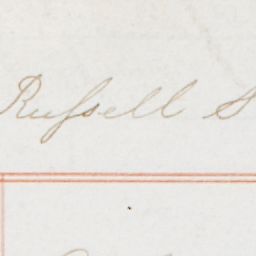 Russell S